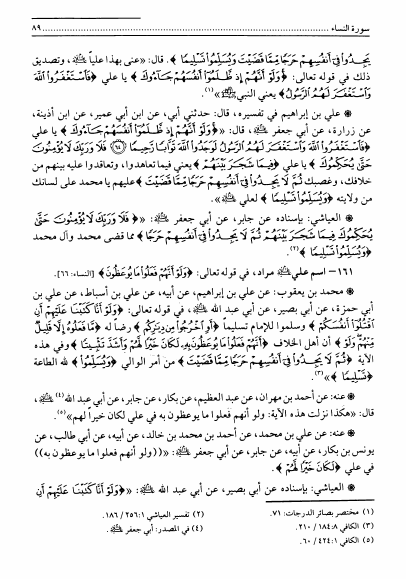 سورة النساء ................ ٨٩
يَجِدُوا فِي أَنفُسِهِمْ حَرَجًا مِمَّا قَضَيْتَ وَيُسَلِّمُوا تَسْلِيمًا﴾. قال: «عنى بهذا علياً ﷺ، وتصديق
ذلك في قوله تعالى: ﴿وَلَوْ أَنَّهُمْ إِذ ظَلَمُوا أَنفُسَهُمْ جَاءُوكَ﴾ يا علي ﴿فَاسْتَغْفَرُوا اللَّهَ
وَاسْتَغْفَرَ لَهُمُ الرَّسُولُ﴾ يعني النبي ﷺ»(١).
* علي بن إبراهيم في تفسيره، قال: حدثني أبي، عن ابن أبي عمير، عن ابن أذينة،
عن زرارة، عن أبي جعفر ﷺ، قال: «﴿وَلَوْ أَنَّهُمْ إِذ ظَلَمُوا أَنفُسَهُمْ جَاءُوكَ﴾ يا علي
﴿فَاسْتَغْفَرُوا اللَّهَ وَاسْتَغْفَرَ لَهُمُ الرَّسُولُ لَوَجَدُوا اللَّهَ تَوَّابًا رَحِيمًا (٦٤) فَلَا وَرَبِّكَ لَا يُؤْمِنُونَ
حَتَّى يُحَكِّمُوكَ﴾ يا علي ﴿فِيمَا شَجَرَ بَيْنَهُمْ﴾ يعني فيما تعاهدوا، وتعاقدوا عليه بينهم من
خلافك، وغصبك ثُمَّ لَا يَجِدُوا فِي أَنفُسِهِمْ حَرَجًا مِمَّا قَضَيْتَ﴾ عليهم يا محمد على لسانك
من ولايته ﴿وَيُسَلِّمُوا تَسْلِيمًا﴾ لعلي ﷺ».
* العياشي: بإسناده عن جابر، عن أبي جعفر ﷺ: «﴿فَلَا وَرَبِّكَ لَا يُؤْمِنُونَ حَتَّى
يُحَكِّمُوكَ فِيمَا شَجَرَ بَيْنَهُمْ ثُمَّ لَا يَجِدُوا فِي أَنفُسِهِمْ حَرَجًا﴾ مما قضى محمد وآل محمد
﴿وَيُسَلِّمُوا تَسْلِيمًا﴾»(٢).
١٦١- اسم علي ﷺ مراد، في قوله تعالى: ﴿وَلَوْ أَنَّهُمْ فَعَلُوا مَا يُوعَظُونَ﴾ [النساء: ٦٦].
* محمد بن يعقوب: عن علي بن إبراهيم، عن أبيه، عن علي بن أسباط، عن علي بن
أبي حمزة، عن أبي بصير، عن أبي عبد الله ﷺ، في قوله تعالى: «﴿وَلَوْ أَنَّا كَتَبْنَا عَلَيْهِمْ أَنِ
اقْتُلُوا أَنفُسَكُمْ﴾ وسلموا للإمام تسليماً ﴿أَوِ اخْرُجُوا مِن دِيَارِكُم﴾ رضاً له ﴿مَا فَعَلُوهُ إِلَّا قَلِيلٌ
مِنْهُمْ وَلَوْ﴾ أن أهل الخلاف ﴿أَنَّهُمْ فَعَلُوا مَا يُوعَظُونَ بِهِ لَكَانَ خَيْرًا لَهُمْ وَأَشَدَّ تَثْبِيتًا﴾ وفي هذه
الآية ﴿ثُمَّ لَا يَجِدُوا فِي أَنفُسِهِمْ حَرَجًا مِمَّا قَضَيْتَ﴾ من أمر الوالي ﴿وَيُسَلِّمُوا﴾ لله الطاعة
﴿تَسْلِيمًا﴾»(٣).
* عنه: عن أحمد بن مهران، عن عبد العظيم، عن بكار، عن جابر، عن أبي عبد الله(٤) ﷺ،
قال: «هكذا نزلت هذه الآية: ولو أنهم فعلوا ما يوعظون به في علي لكان خيراً لهم»(٥).
* عنه: عن علي بن محمد، عن أحمد بن محمد بن خالد، عن أبيه، عن أبي طالب، عن
يونس بن بكار، عن أبيه، عن جابر، عن أبي جعفر ﷺ: «((ولو أنهم فعلوا ما يوعظون به))
في علي ﴿لَكَانَ خَيْرًا لَهُمْ﴾.
* العياشي: بإسناده عن أبي بصير، عن أبي عبد الله ﷺ: «﴿وَلَوْ أَنَّا كَتَبْنَا عَلَيْهِمْ أَنِ
(١) مختصر بصائر الدرجات: ٧١.
(٢) تفسير العياشي ١: ٢٥٦/ ١٨٦.
(٣) الكافي ٨: ١٨٤/ ٢١٠.
(٤) في المصدر: أبي جعفر ﷺ.
(٥) الكافي ١: ٤٢٤/ ٦٠.